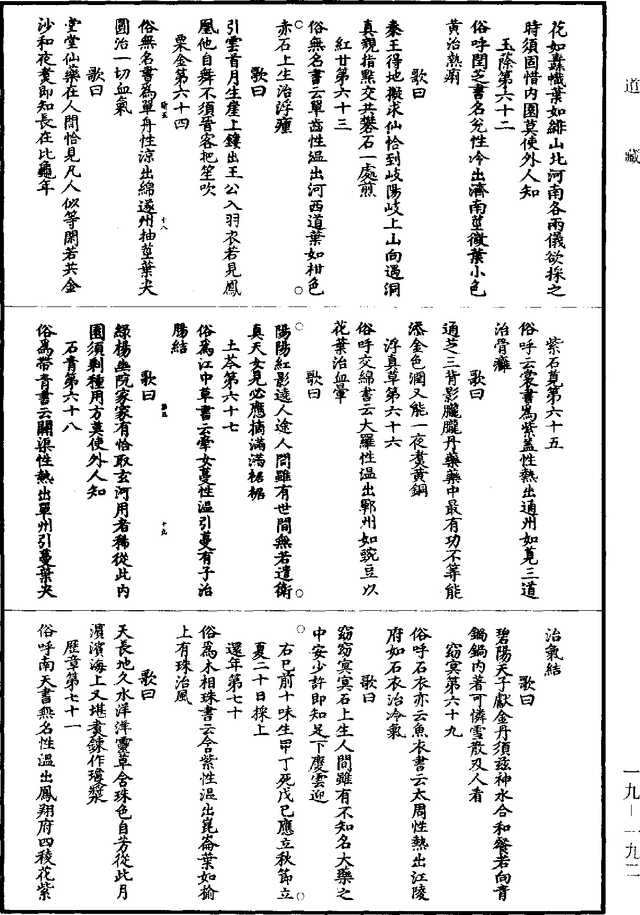 道藏
花如蠹懺葉如緋山北河南各兩儀欲採之
時須固惜內園莫使外人知
玉除第六十二
俗呼閏芝書名兊性冷出濟南莖微葉小色
黃治熱痢
歌曰
秦王得地擬求仙恰到岐陽岐上山向遇洞
真親指點交共礬石一處煎
紅廿第六十三
俗無名書云單齒性溫出河西道葉如柑色
赤石上生治浮瘇
歌曰
引雲首月生崖上鏽出王公入羽衣若見鳳
凰他自舞不須晉客把笙吹
栗金第六十四
俗無名書爲單丹性涼出綿遂州抽莖葉尖
圓治一切血氣
歌曰
堂堂仙藥在人間恰見凡人似等閑若共金
沙和夜煑即知長在比龜年
紫石莧第六十五
俗呼云裳書爲紫蓋性熱出通州如莧三道
治骨癰
歌曰
通芝三背影朧朧丹藥藥中最有功不等能
添金色潤又能一夜煑黃銅
浮真草第六十六
俗呼交綿書云大羅性溫出鄆州如豌豆以
花葉治血暈
歌曰
陽陽紅影遶人途人間雖有世間無若遣衛
真天女見必應摘滿滿裾裾
土苓第六十七
俗爲江中草書云牽女蔓性溫引蔓有子治
腸結
歌曰
綠楊垂院家家有恰取玄河用者稀從此內
園須剩種用方莫使外人知
石青第六十八
俗爲帶青書云關渠性熱出單州引蔓葉尖
治氣結
歌曰
碧陽天子獻金丹須兹神水合和餐若向青
鍋鍋內著可憐雪散及人看
窈冥第六十九
俗呼石衣亦云魚衣書云太周性熱出江陵
府如石衣治冷氣
歌曰
窈窈冥冥石上生人間雖有不知名大藥之
中安少許即知足下慶雲迎
右已前十味生甲丁死戊己應立秋節立
夏二十日採上
還年第七十
俗爲木相珠書云含紫性溫出崑崙葉如榆
上有珠治風
歌曰
天長地久水洋洋靈草含珠色自芳從此月
濱濱海上又堪煑鍊作瓊漿
歷章第七十一
俗呼南天書無名性溫出鳳翔府四稜花紫
一九—一九二